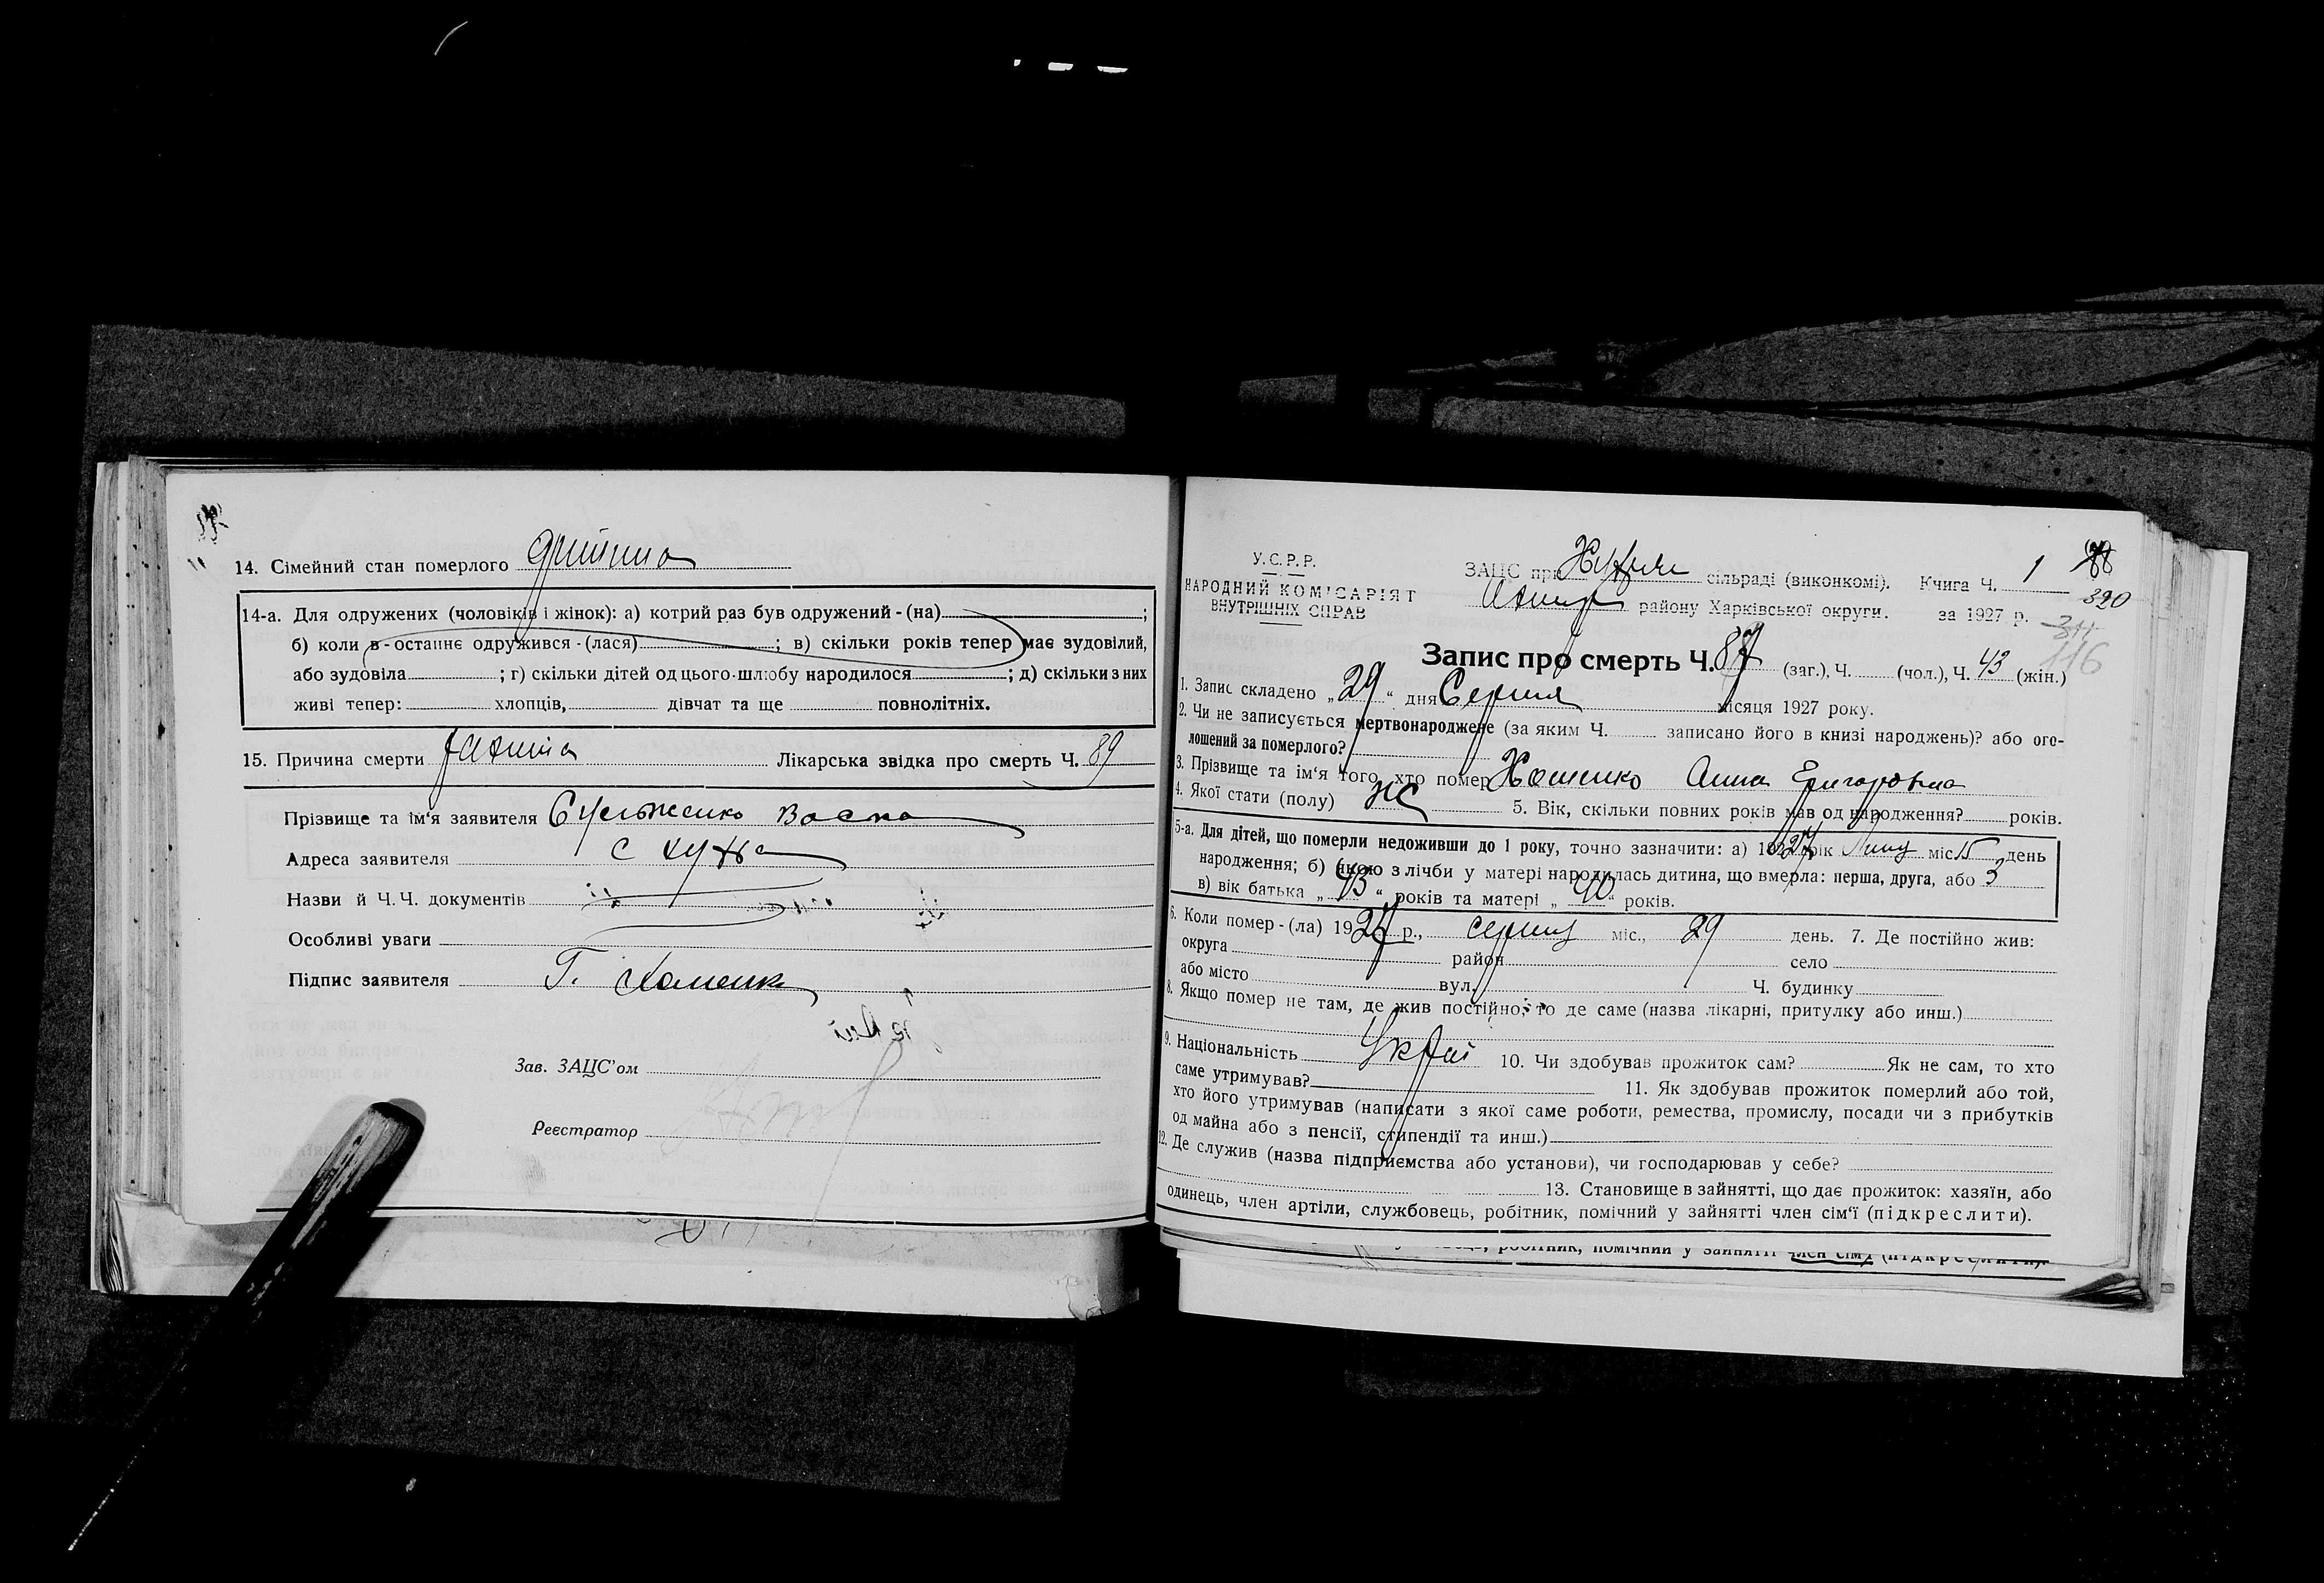 14. Сімейний стан померлого дитина
14-а. Для одружених (чоловіків і жінок): а) котрий раз був одружений - (на) ;
б) коли в - останнє одружився - (лася) ; в) скільки років тепер має зудовілий,
або зудовіла ; г) скільки дітей од цього шлюбу народилося ; д) скільки з них
живі тепер: хлопців, дівчат та ще повнолітніх.
15. Причина смерти Лікарська звідка про смерть Ч. 89
Прізвище та ім'я заявителя
Адреса заявителя с
Назви й Ч. Ч. документів
Особливі уваги
Підпис заявителя Г. Хоменко
Зав. ЗАЦС'ом
Реєстратор
У.С.Р.Р.
НАРОДНИЙ КОМІСАРІЯТ
ВНУТРІШНІХ СПРАВ
ЗАЦС при сільраді (виконкомі). Книга Ч. 1
району Харківської округи. за 1927 р.
320
116
Запис про смерть Ч. 87 (заг.), Ч. (чол.), Ч. 43 (жін.)
1. Запис складено „29“ дня Серпня місяця 1927 року.
2. Чи не записується мертвонароджене (за яким Ч. записано його в книзі народжень)? або ого-
лошений за померлого?
3. Прізвище та ім'я того, хто помер Хоменко Анна Григоровна
4. Якої стати (полу) жіс 5. Вік, скільки повних років мав од народження? років.
5-а. Для дітей, що померли недоживши до 1 року, точно зазначити: а) 1927 рік Липц міс. 15 день
народження; б) якою з лічби у матері народилась дитина, що вмерла: перша, друга, або 3
в) вік батька „43“ років та матері „40“ років.
6. Коли помер - (ла) 1927 р., серпц міс., 29 день. 7. Де постійно жив:
округа район село
або місто вул. Ч. будинку
8. Якщо помер не там, де жив постійно, то де саме (назва лікарні, притулку або инш.)
9. Національність Украї 10. Чи здобував прожиток сам? Як не сам, то хто
саме утримував? 11. Як здобував прожиток померлий або той,
хто його утримував (написати з якої саме роботи, ремества, промислу, посади чи з прибутків
од майна або з пенсії, стипендії та инш.)
12. Де служив (назва підприємства або установи), чи господарював у себе?
13. Становище в зайнятті, що дає прожиток: хазяїн, або
одинець, член артіли, службовець, робітник, помічний у зайнятті член сім'ї (підкреслити).
робітник, помічний у зайнятті член сім'ї (підкреслити).